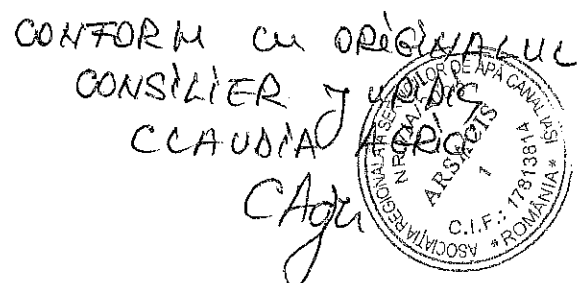 CONFORM CU ORIGINALUL
CONSILIER JURIDIC
CLAUDIA
ASOCIAȚIA REGIONALĂ A SERVICIILOR DE APĂ CANAL IAȘI
ARSACIS
1
C.I.F.: 17813814
*ROMÂNIA*